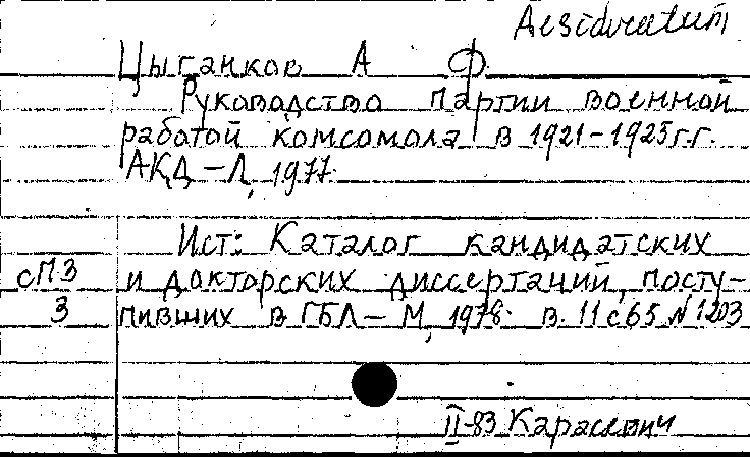 Desideratum
Цыганков А Ф
Руководство партии военной
работой комсомола в 1921-1925г.г.
АКД-Л, 1977
Ист: Каталог кандидатских
сПЗ и докторских диссертаций, посту-
3 пивших в ГБЛ-М, 1978. в. 11 с65 №1203
II-83 Карасевич